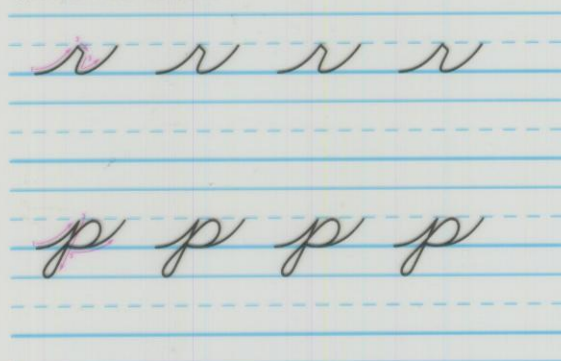 r r r r
p p p p